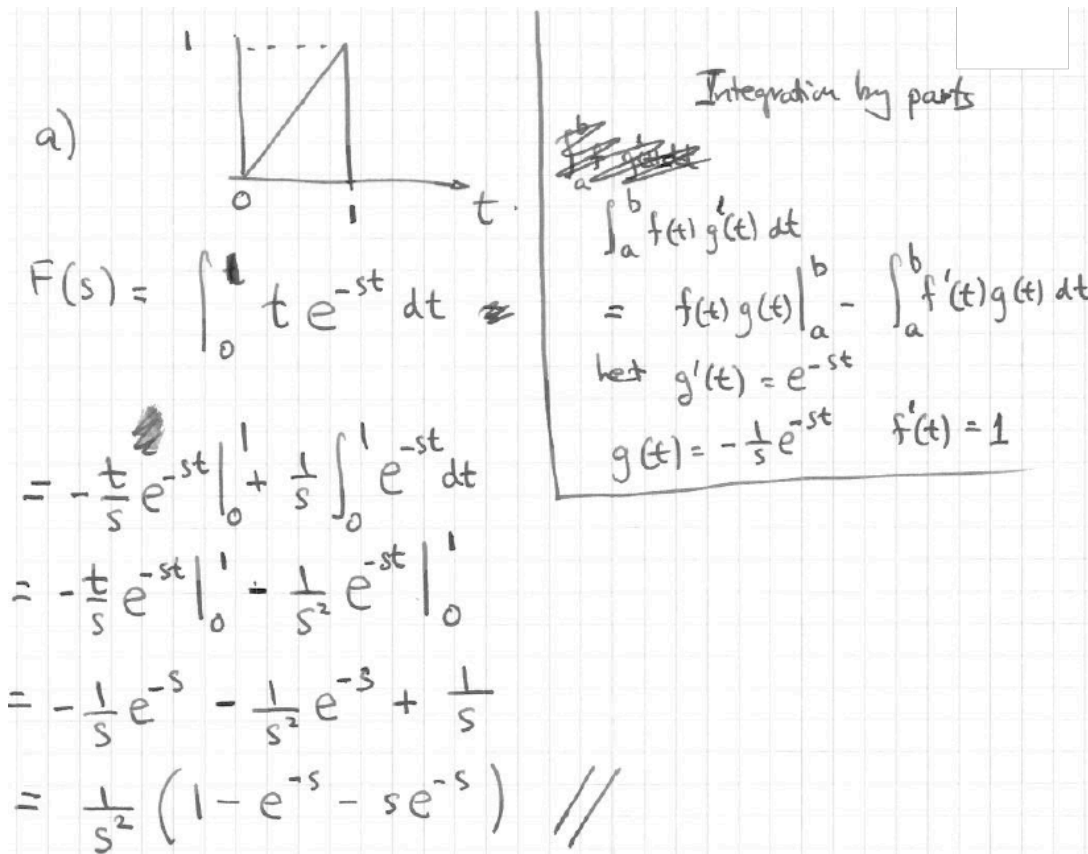 a)
1
0 1 t
F(s) = ∫₀¹ t e^{-st} dt
= -t/s e^{-st} |₀¹ + 1/s ∫₀¹ e^{-st} dt
= -t/s e^{-st} |₀¹ - 1/s² e^{-st} |₀¹
= -1/s e^{-s} - 1/s² e^{-s} + 1/s
= 1/s² (1 - e^{-s} - s e^{-s}) //
Integration by parts
∫ₐᵇ f(t) g'(t) dt
= f(t) g(t) |ₐᵇ - ∫ₐᵇ f'(t) g(t) dt
let g'(t) = e^{-st}
g(t) = -1/s e^{-st} f'(t) = 1